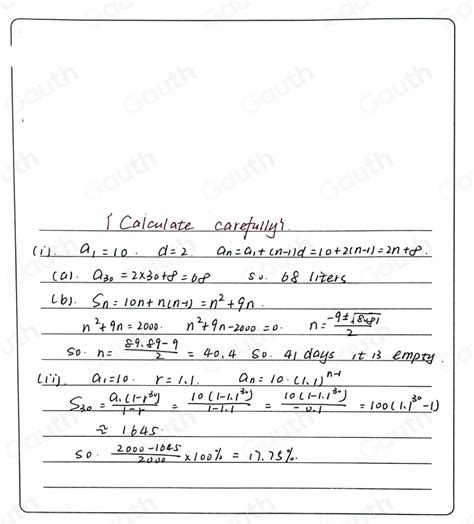 { Calculate carefully}.
(i). a₁=10. d=2. aₙ=a₁+(n-1)d=10+2(n-1)=2n+8.
(a). a₃₀=2×30+8=68 so. 68 liters
(b). Sₙ=10n+n(n-1)=n²+9n.
n²+9n=2000. n²+9n-2000=0. n=(-9±√8081)/2
so. n=(89.89-9)/2=40.4 so. 41 days it is empty.
(ii). a₁=10. r=1.1. aₙ=10·(1.1)ⁿ⁻¹
S₃₀=a₁(1-r³⁰)/(1-r)=10(1-1.1³⁰)/(1-1.1)=10(1-1.1³⁰)/(-0.1)=100(1.1³⁰-1)
≈1645.
so. (2000-1645)/2000×100%=17.75%.
Gauth